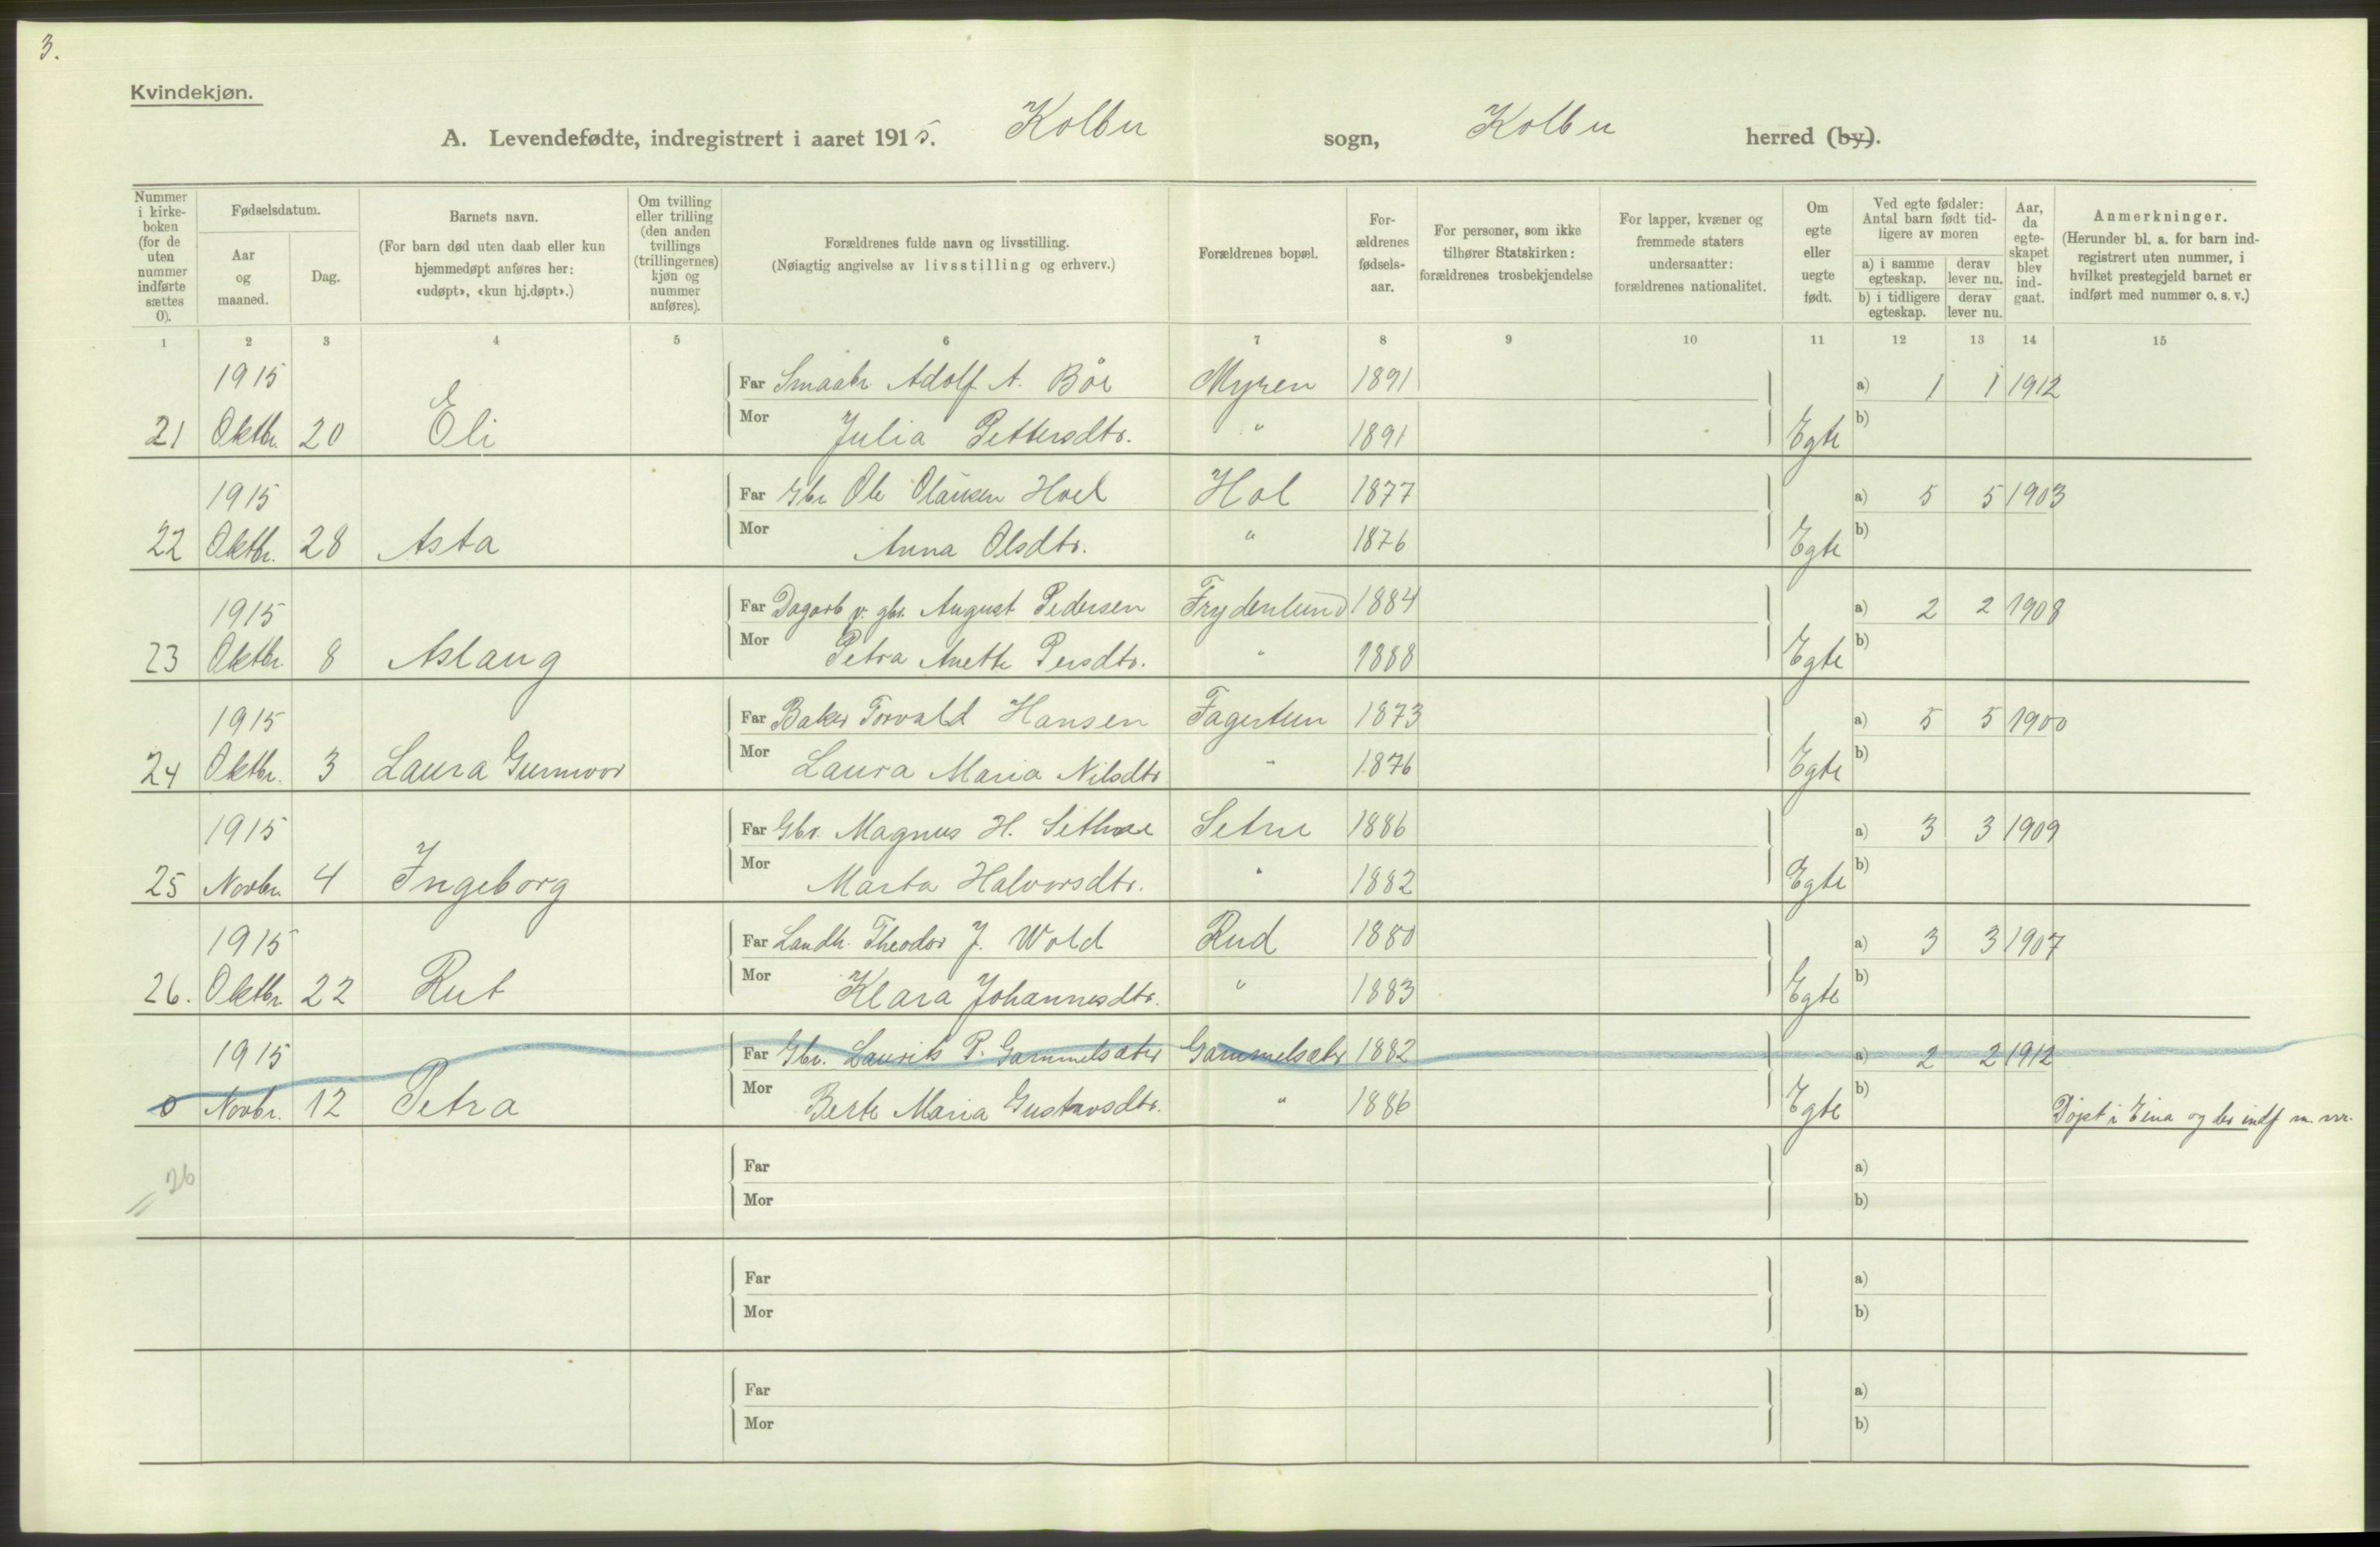 3.
Kvindekjøn.
A. Levendefødte, indregistrert i aaret 1915. Kolbu sogn, Kolbu herred (by).
Nummer i kirkeboken (for de uten nummer indførte sættes 0).
Fødselsdatum.
Aar og maaned.
Dag.
Barnets navn.
(For barn død uten daab eller kun hjemmedøpt anføres her: «udøpt», «kun hj.døpt».)
Om tvilling eller trilling (den anden tvillings (trillingernes) kjøn og nummer anføres).
Forældrenes fulde navn og livsstilling.
(Nøiagtig angivelse av livsstilling og erhverv.)
Forældrenes bopæl.
Forældrenes fødselsaar.
For personer, som ikke tilhører Statskirken: forældrenes trosbekjendelse
For lapper, kvæner og fremmede staters undersaatter: forældrenes nationalitet.
Om egte eller uegte født.
Ved egte fødsler: Antal barn født tidligere av moren
a) i samme egteskap. derav lever nu.
b) i tidligere egteskap. derav lever nu.
Aar, da egteskapet blev indgaat.
Anmerkninger.
(Herunder bl. a. for barn indregistrert uten nummer, i hvilket prestegjeld barnet er indført med nummer o. s. v.)
1 2 3 4 5 6 7 8 9 10 11 12 13 14 15
1915 Far Smaabr. Adolf A. Bøe Myren 1891 a) 1 1 1912
21 Oktbr. 20 Eli Mor Julia Pettersdtr. " 1891 Egte b)
1915 Far Gbr Ole Olausen Hoel Hol 1877 a) 5 5 1903
22 Oktbr. 28 Asta Mor Anna Olsdtr. " 1876 Egte b)
1915 Far Dagarb v. gbr. August Pedersen Frydenlund 1884 a) 2 2 1908
23 Oktbr. 8 Aslaug Mor Petra Anette Persdtr. " 1888 Egte b)
1915 Far Baker Torvald Hansen Fagertun 1873 a) 5 5 1900
24 Oktbr. 3 Laura Gunnvor Mor Laura Maria Nilsdtr " 1876 Egte b)
1915 Far Gbr. Magnus H. Sethne Setne 1886 a) 3 3 1909
25 Novbr. 4 Ingeborg Mor Marta Halvorsdtr. " 1882 Egte b)
1915 Far Landh. Theodor J. Wold Rud 1880 a) 3 3 1907
26. Oktbr 22 Rut Mor Klara Johannesdtr. " 1883 Egte b)
1915 Far Gbr. Laurits P. Gammelsæter Gammelsæter 1882 a) 2 2 1912
0 Novbr. 12 Petra Mor Berte Maria Gustavsdtr. " 1886 Egte b) Døpt i Eina og der indf m. nr.
26 Far a)
Mor b)
Far a)
Mor b)
Far a)
Mor b)